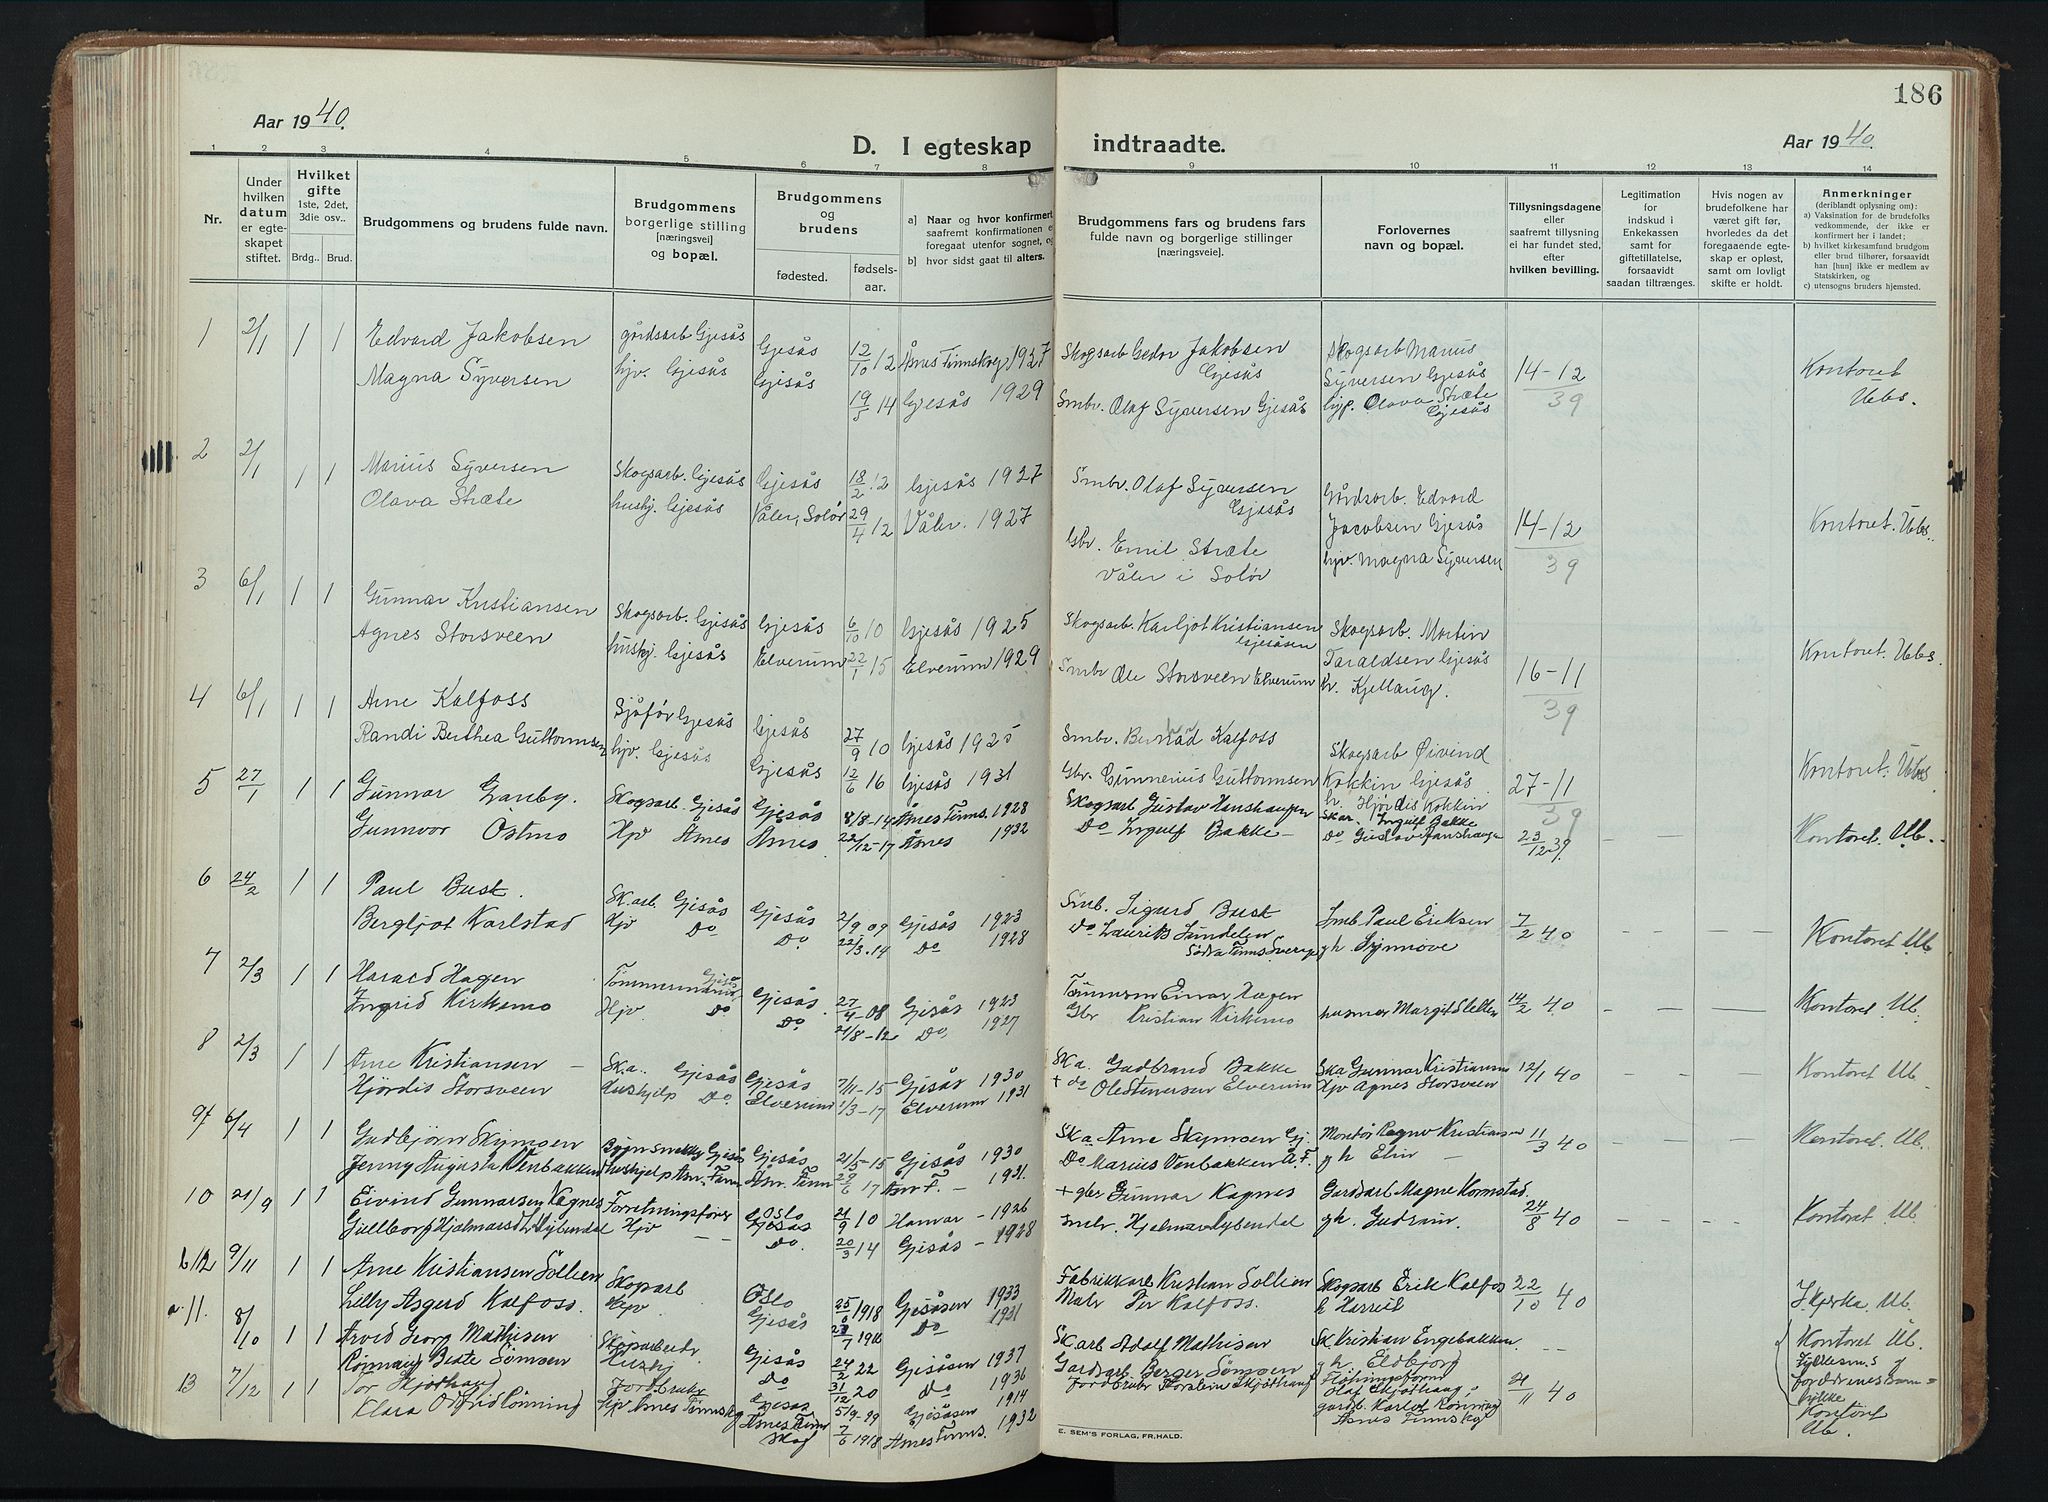 186
Aar 1940.
Aar 1940.
D. I egteskap indtraadte.
1 2 3 4 5 6 7 8 9 10 11 12 13 14
Nr.
Under hvilken datum er egteskapet stiftet.
Hvilket gifte 1ste, 2det, 3die osv..
Brdg.. Brud.
Brudgommens og brudens fulde navn.
Brudgommens borgerlige stilling [næringsvei] og bopæl.
Brudgommens og brudens
fødested. fødselsaar.
a) Naar og hvor konfirmert saafremt konfirmationen er foregaat utenfor sognet, og
b) hvor sidst gaat til alters.
Brudgommens fars og brudens fars fulde navn og borgerlige stillinger [næringsveie].
Forlovernes navn og bopæl.
Tillysningsdagene eller saafremt tillysning ei har fundet sted, efter hvilken bevilling.
Legitimation for indskud i Enkekassen samt for giftetillatelse, forsaavidt saadan tiltrænges.
Hvis nogen av brudefolkene har været gift før, hvorledes det foregaaende egteskap er opløst, samt om lovligt skifte er holdt.
Anmerkninger (deriblandt oplysning om): a) Vaksination for de brudefolks vedkommende, der ikke er konfirmert her i landet; b) hvilket kirkesamfund brudgom eller brud tilhører, forsaavidt han [hun] ikke er medlem av Statskirken, og c) utensogns bruders hjemsted.
1 2/1 1 1 Edvard Jakobsen gårdsarb Gjesås Gjesås 12/10 12 Åsnes Finnskog 1927 Skogsarb Gedor Jakobsen Gjesås Skogsarb Marius Syversen Gjesås 14-12 39 Kontoret Ubs.
Magna Syversen hjv. Gjesås Gjesås 19/5 14 Gjesås 1929 Smbr. Olaf Syversen Gjesås hjp. Olava Stræte Gjesås
2 2/1 1 1 Marius Syversen Skogsarb. Gjesås Gjesås 18/2 12 Gjesås 1927 Smbr. Olaf Syversen Gjesås Gårdsarb. Edvard Jacobsen Gjesås 14-12 39 Kontoret. Ubs.
Olava Stræte hushj. Gjesås Våler, Solør 29/4 12 Våler. 1927 Gbr. Emil Stræte Våler i Solør hjv. Magna Syversen
3 6/1 1 1 Gunnar Kristiansen Skogsarb. Gjesås Gjesås 6/10 10 Gjesås 1925 Skogsarb. Karljot Kristiansen Gjesåsen Skogsarb. Martin Taraldsen Gjesås 16-11 39 Kontoret. Ubs.
Agnes Storsveen hushj. Gjesås Elverum 22/1 15 Elverum 1929 Smbr Ole Storsveen Elverum fr. Kjellaug.
4 6/1 1 1 Arne Kalfoss Sjåfør Gjesås Gjesås 27/9 10 Gjesås 1925 Smbr. Kalfoss Skogsarb Øivind Kokkin Gjesås 27-11 39 Kontoret. Ubs
Randi Berthea Guttormsen hjv. Gjesås Gjesås 12/6 16 Gjesås 1931 Gbr. Gunnerius Guttormsen fr. Hjørdis Kokkin
5 27/1 1 1 Gunnar Granby. Skogsarb. Gjesås Gjesås 8/8-14 Åsnes Finns. 1928 Skogsarb Gustav Hanshaugen Skar. Ingulf Bakke 23/12 39 - - Kontoret. Ub.
Gunnvor Østmo Hjv Åsnes Åsnes. 22/12-17 Åsnes 1932 Do Ingulf Bakke - Do Gustav Hanshaugen
6 24/2 1 1 Paul Busk. Sk.arb. Gjesås Gjesås 2/9 09 Gjesås 1923 Smb. Sigurd Busk Smb Paul Eriksen 7/2 40 - - - Kontoret Ub
Bergljot Karlstad Hjv Do Do 22/3.14 Do 1928 Do Laurits Sundelen Södra Finns Sverige gh Synnøve
7 2/3 1 1 Harald Hagen Tømmermann Gjesås Gjesås. 27/4-08 Gjesås 1923 Tømmerm Einar Hagen husmor Margit Sletten 14/2 40 - - - Kontoret Ub.
Ingrid Kirkemo Hjv Do Do. 21/8-12 Do, 1927 Gbr Kristian Kirkemo
8 2/3 1 1 Arne Kristiansen - Sk.a. Gjesås Gjesås 7/11-15 Gjesås 1930 Sk a. Gudbrand Bakke Ska Gunnar Kristiansen 12/1 40 - - - Kontoret Ub.
Hjørdis Storsveen Hushjelp Do. Elverum 2/3-17 Elverum 1931 + do Ole Stenersen Elverum Hjv Agnes Storsveen
9 6/4 1 1 Gudbjørn Skymoen Bygn snekker Gjesås Gjesås 21/5-15 Gjesås 1930 Ska. Arne Skymoen Gj. Montør Ragnv Kristiansen 11/3 40 - - - Kontoret. Ub
Jenny Augusta Venbakken hushjelp Åsn. Finn Åsn. Finn 29/6 17 Åsn F. - 1931. Do Marius Venbakken Å.F. gh Elin -
10 21/9 1 1 Eivind Gunnarsen Kagnes Forretningsfører Oslo 21/9 10 Hamar - 1926 + gbr Gunnar Kagnes Gardsarb Magne Kormstad. 24/8 40 - - - Kontoret Ub.
Gullborg Hjalmarsdtr Nybendal Hjv - - Gjesås Do. 20/3 14 Gjesås - 1928 smbr. Hjalmar Nybendal gh. Gudrun.
b/12 9/11 1 1 Arne Kristiansen Sollien Skogarb Oslo 25/8 1918 Gjesåsen 1933 Fabrikkarb Kristian Sollien Skogsarb Erik Kalfos 22/10 40 I kjerka. Ub.
Lilly Asgerd Kalfoss. Hjv Gjesås 28/7 1916 Do 1931 Mabr Per Kalfoss. h Harriet
a.11. 8/10 1 1 Arvid Georg Mathisen Skogarbeider Gjesås 24/2 22 Gjesåsen 1937 Sk.arb Adolf Mathisen Sk. Kristian Engebakken. - - Kontoret Ub. Fylkesm.s og foreldrenes samtykke
Rønnaug Beate Sømoen Hushj Do 31/12 20 Do 1936 Gardsarb. Berger Sømoen gh. Eldbjørg
13 7/12 1 1 Tor Skjøthaug Jordbruker Gjesås 5/9-99 Gjesåsen 1914 Jordbruker Torstein Skjøthaug Olaf Skjøthaug, 21/11 40 Kontoret Ub.
Klara Odfrid Rønning Hjv Åsnes Finnskog Åsnes Finnskog 7/6 1918 Åsnes Finns. 1932 gardb. Karlot Rønning Åsnes Finnskog
E. SEM'S FORLAG, FR.HALD.